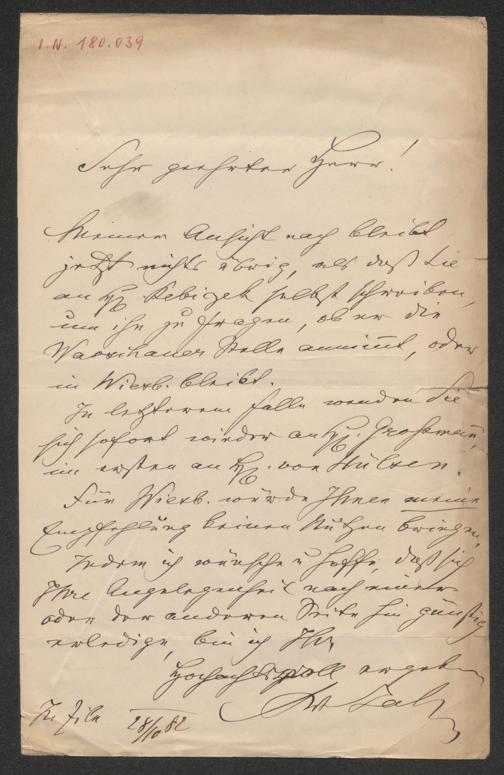 I.N. 180.039
Sehr geehrter Herr!
Meiner Ansicht nach bleibt
jetzt nichts übrig, als daß Sie
an H. Rebizek selbst schreiben,
um ihn zu fragen, ob er die
Warschauer Stelle annimmt, oder
in Wiesb. bleibt.
In letzterem Falle wenden Sie
sich sofort wieder an H. Großmann,
im ersten an H. von Hülsen.
Für Wiesb. würde Ihnen meine
Empfehlung keinen Nutzen bringen.
Indem ich wünsche u hoffe, daß sich
Ihre Angelegenheit nach einer
oder der anderen Seite hin günstig
erledige, bin ich Ihr
Hochachtungsvoll ergeb
In Eile 28/10 82